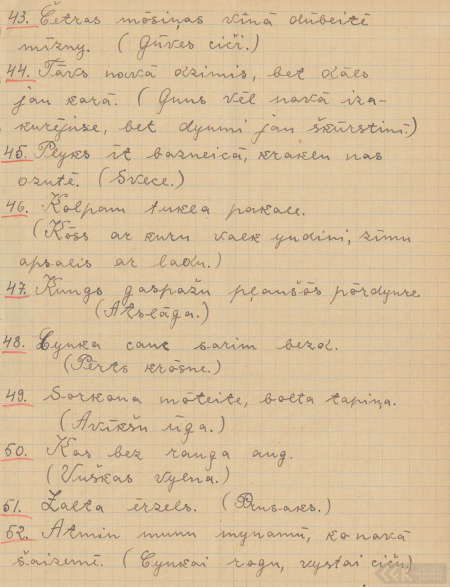 43. Četras mōsiņas vīnā dūbeitē
mīzny. (Gūves ciči.)
44. Tāvs navā dzimis, bet dāls
jau karā. (Guns vēl navā iza-
kurējuse, bet dyumi jau škūrstinī.)
45. Plyks īt bazneicā, kraklu nas
ozutē. (Svece.)
46. Kolpam tukla pakale.
(Kōss ar kuru valk yudini, zīmu
apsalis ar ladu.)
47. Kungs gaspažu pļaušōs pōrdyure.
(Atslāga.)
48. Cyuka cauc sarim bezd.
(Pērts krōsne.)
49. Sorkona mōteite, bolta tapiņa.
(Avīkšu ūga.)
50. Kas bez ranga aug.
(Vuškas vylna.)
51. Zalta ērzels. (Prusaks.)
52. Atmin munu mynamū, ko navā
šaizemē. (Cyukai rogu, vystai ciču)